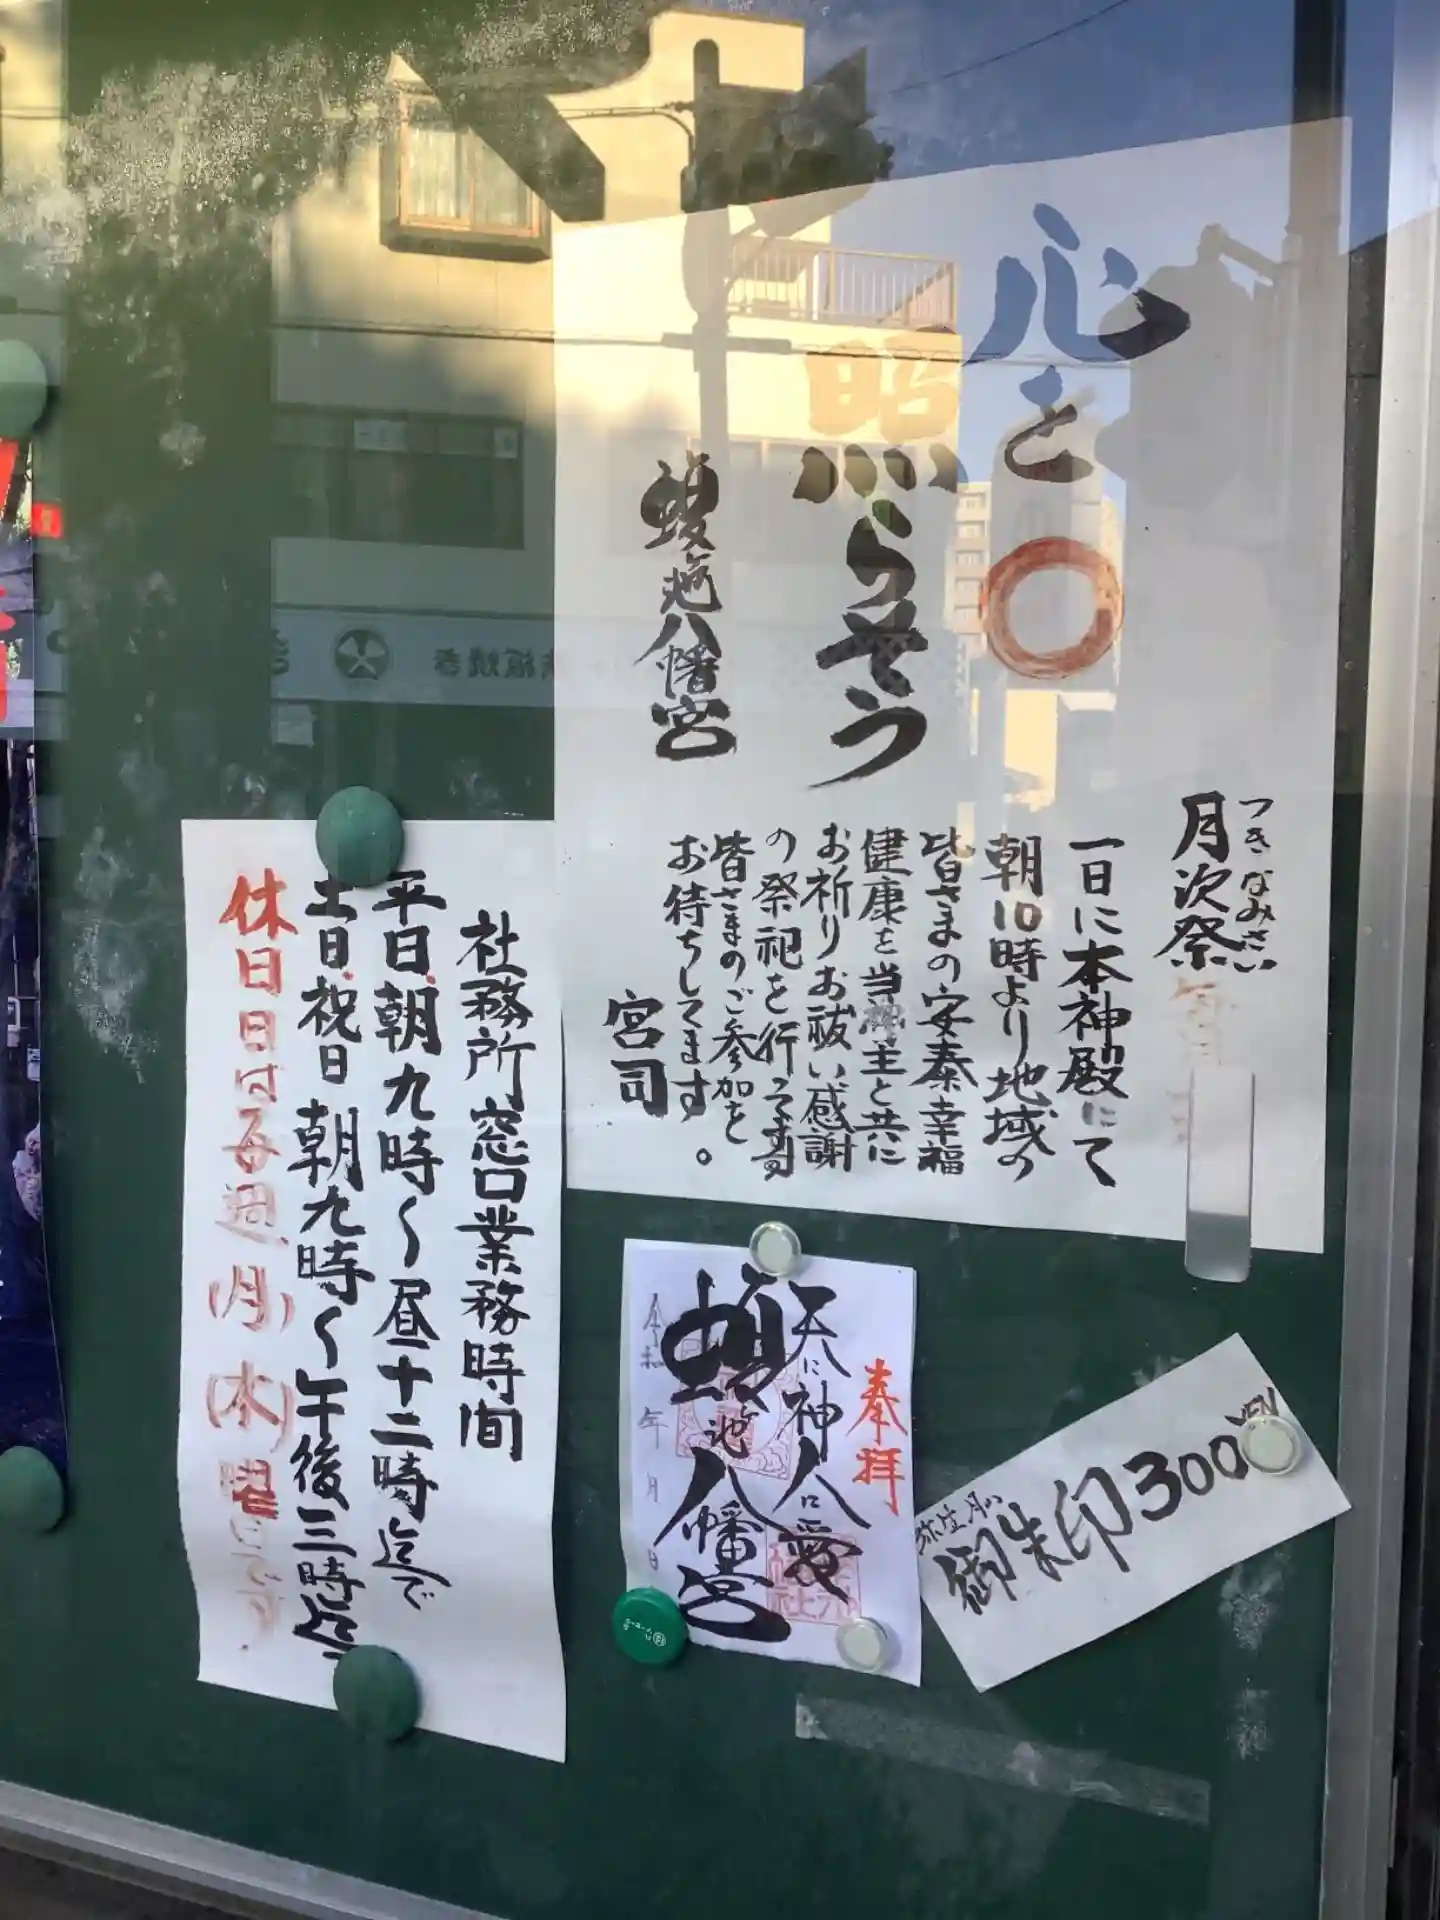 心を〇
照らそう
蝮池八幡宮
つきなみさい
月次祭
一日に本神殿にて
朝10時より地域の
皆さまの安泰幸福
健康を当神主と共に
お祈りお祓い感謝
の祭祀を行います
皆さまのご参加を
お待ちしてます。
宮司
社務所窓口業務時間
平日朝九時〜昼十二時迄で
土日祝日朝九時〜午後三時迄で
休日日は毎週(月)(木)曜日です。
奉拝
天に神人に愛
蝮池八幡宮
令和 年 月 日
御朱印300YEN